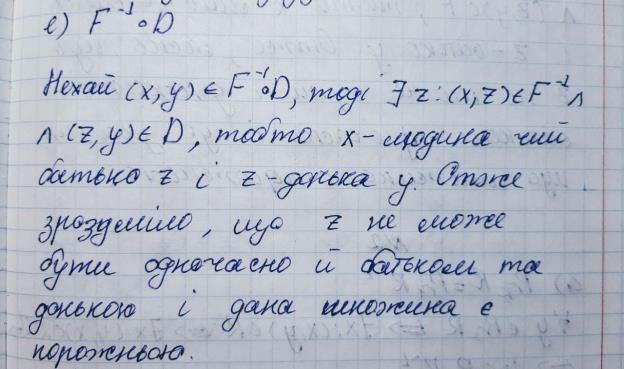 e) F⁻¹∘D
Нехай (x, y) ∈ F⁻¹∘D, тоді ∃ z : (x, z) ∈ F⁻¹ ∧
∧ (z, y) ∈ D, тобто x - людина чий
батько z і z - донька y. Отже
зрозуміло, що z не може
бути одночасно й батьком та
донькою і дана множина є
порожньою.